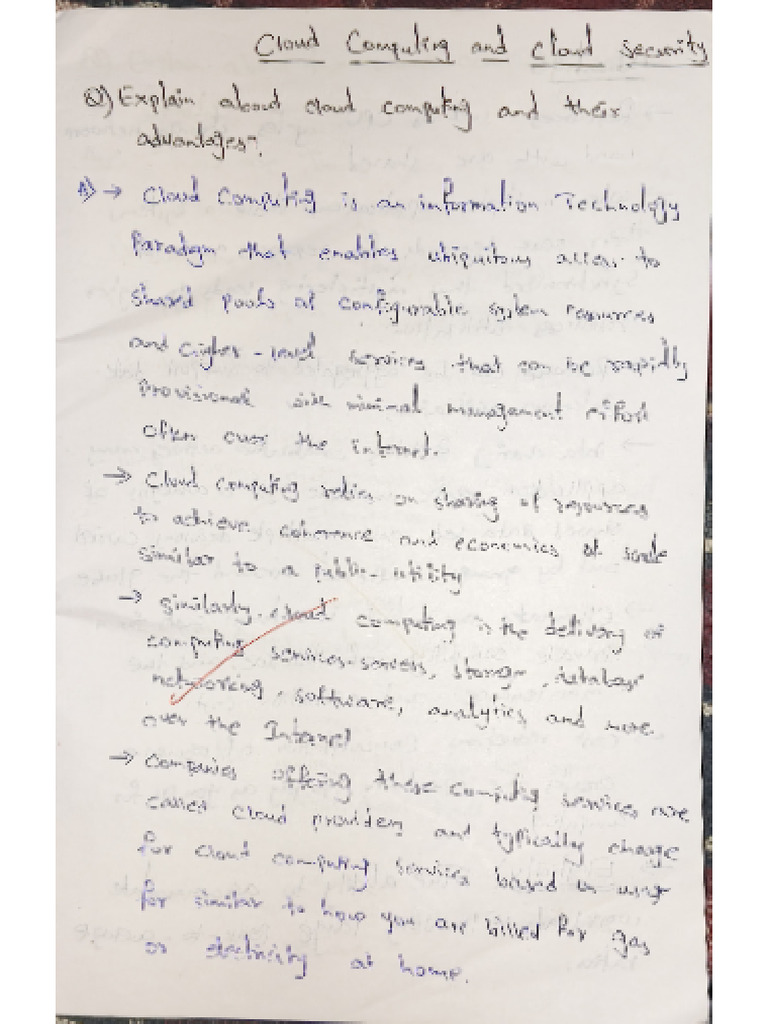 Cloud Computing and cloud security
Q) Explain about cloud computing and their
advantages:-
A) → Cloud Computing is an information Technology
Paradigm that enables ubiquitous access to
shared pools of configurable system resources
and higher-level services that can be rapidly
Provisioned with minimal management effort
often over the internet.
→ Cloud computing relies on sharing of resources
to achieve coherence and economics of scale
similar to a public-utility
→ Similarly cloud computing is the delivery of
computing services-servers, storage, database
networking, software, analytics and more
over the Internet
→ Companies offering these computing services are
called cloud providers and typically charge
for cloud computing services based on usage
for similar to how you are billed for gas
or electricity at home.